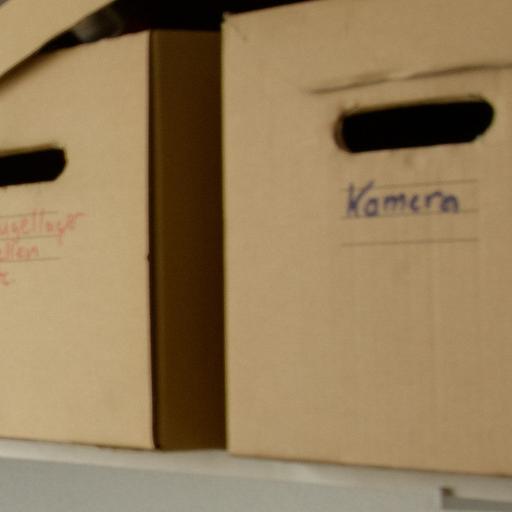 ugellager
ellen
Kamera